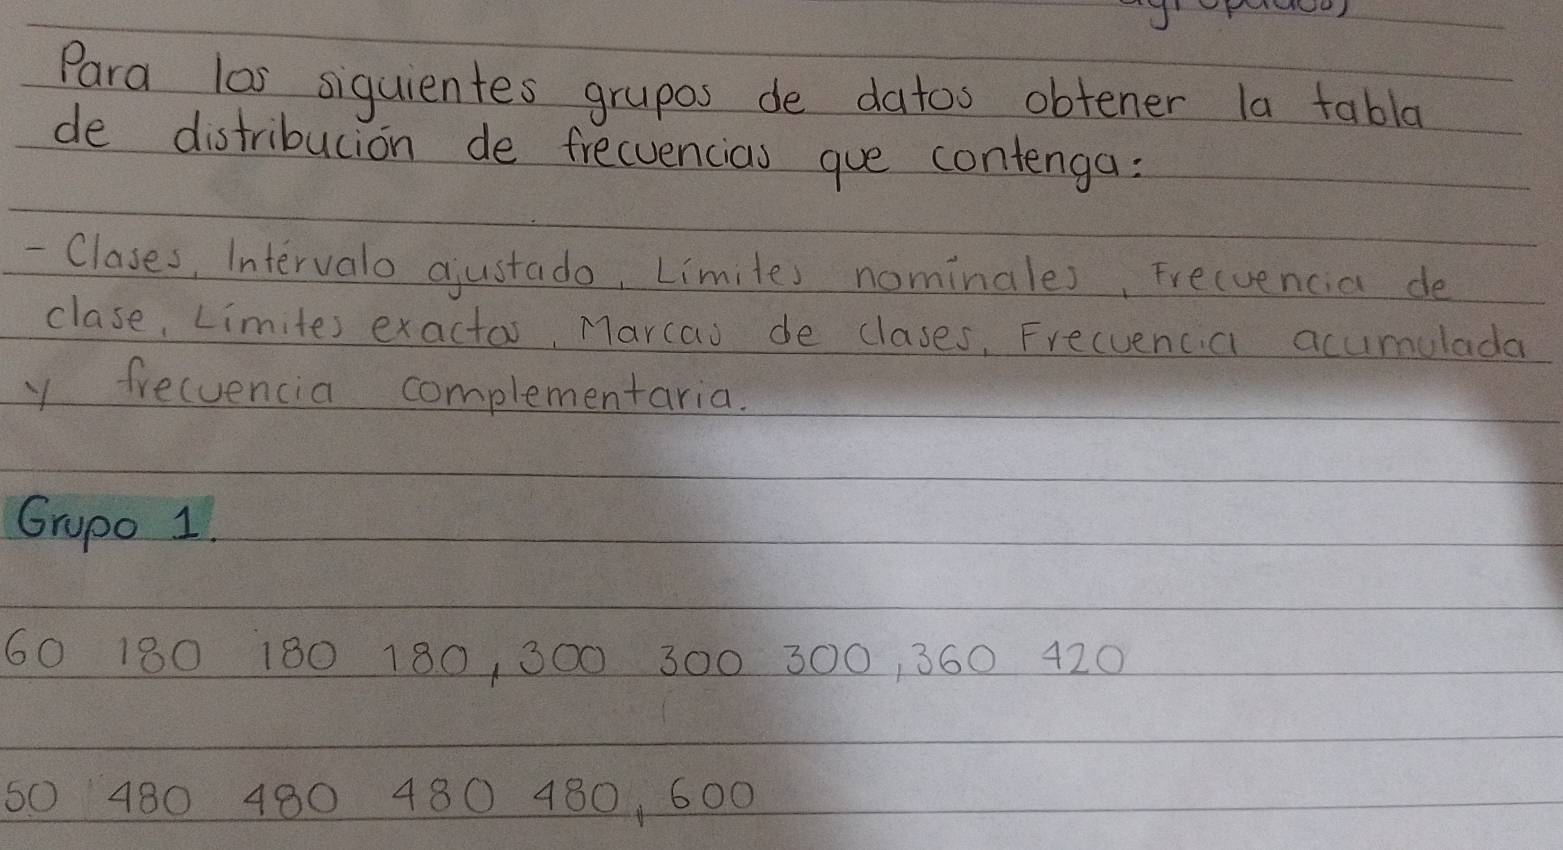 Para los siguientes grupos de datos obtener la tabla
de distribución de frecuencias que contenga:
- Clases, Intérvalo ajustado, Límites nominales, Frecuencia de
clase, Límites exactos, Marcas de clases, Frecuencia acumulada
y frecuencia complementaria.
Grupo 1.
60 180 180 180, 300 300 300, 360 420
480 480 480 480, 600